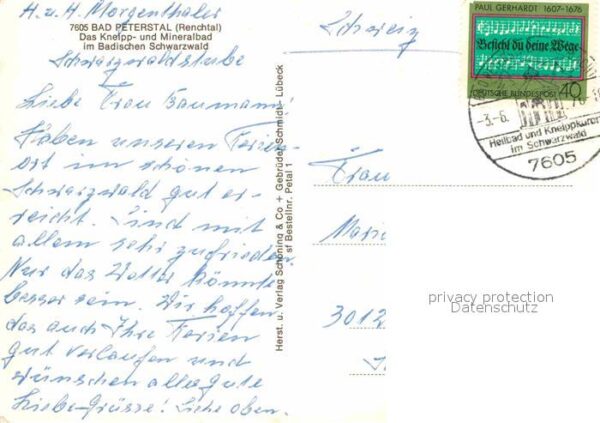 H. u. H. Morgenthaler
7605 BAD PETERSTAL (Renchtal)
Das Kneipp- und Mineralbad
im Badischen Schwarzwald
Schwarzwaldstube
Liebe Frau Baumann!
Haben unseren Ferien-
ort im schönen
Schwarzwald gut er-
reicht. Sind mit
allem sehr zufrieden.
Nur das Wetter könnte
besser sein. Wir hoffen,
das auch Ihre Ferien
gut verlaufen und
wünschen alles gute
Liebe-Grüsse! Siehe oben.
Herst. u. Verlag Schöning & Co + Gebrüder Schmidt, Lübeck
sf Bestellnr. Petal 1
Schweiz
PAUL GERHARDT 1607-1676
Befiehl du deine Wege
DEUTSCHE BUNDESPOST 40
-3.-6.
Heilbad und Kneippkurort
im Schwarzwald
7605
Frau
Marie
3012
privacy protection
Datenschutz